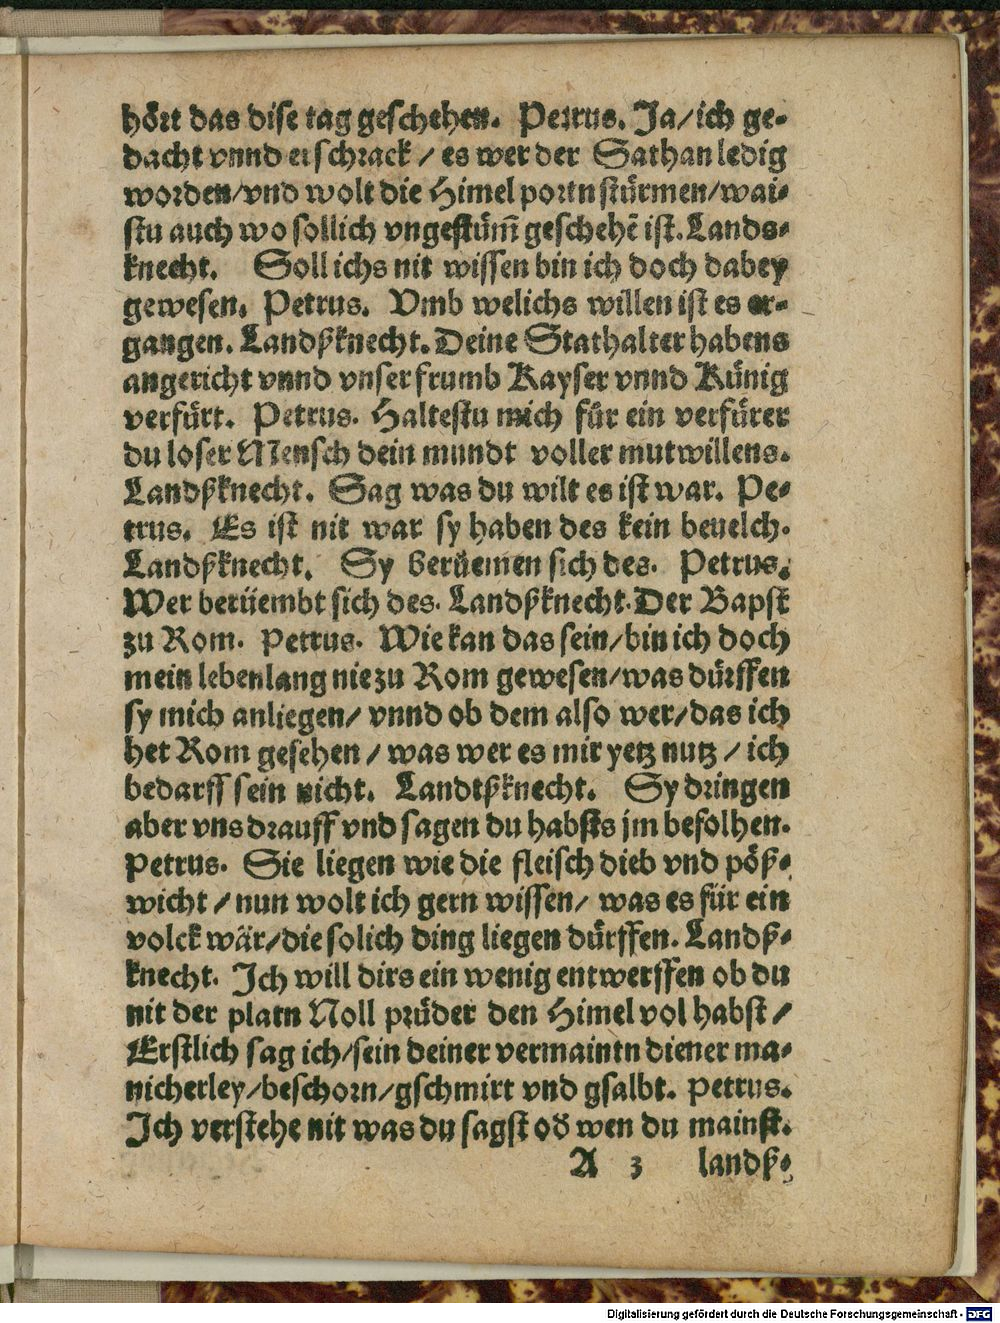 hört das dise tag geschehen. Petrus. Ja/ich ge-
dacht vnnd erschrack / es wer der Sathan ledig
worden/vnd wolt die Himel portn stürmen/wai-
stu auch wo sollich vngestüm̃ geschehẽ ist. Lands-
knecht. Soll ichs nit wissen bin ich doch dabey
gewesen. Petrus. Vmb welichs willen ist es er-
gangen. Landßknecht. Deine Stathalter habens
angericht vnnd vnser frumb Kayser vnnd Künig
verfürt. Petrus. Haltestu mich für ein verfürer
du loser Mensch dein mundt voller mutwillens.
Landßknecht. Sag was du wilt es ist war. Pe-
trus. Es ist nit war sy haben des kein beuelch.
Landßknecht. Sy berüemen sich des. Petrus.
Wer berüembt sich des. Landßknecht. Der Bapst
zu Rom. Petrus. Wie kan das sein/bin ich doch
mein lebenlang nie zu Rom gewesen/was dürffen
sy mich anliegen/ vnnd ob dem also wer/das ich
het Rom gesehen / was wer es mir yetz nutz / ich
bedarff sein nicht. Landtßknecht. Sy dringen
aber vns drauff vnd sagen du habsts jm befolhen.
Petrus. Sie liegen wie die fleisch dieb vnd pöß-
wicht / nun wolt ich gern wissen/ was es für ein
volck wär/die solich ding liegen dürffen. Landß-
knecht. Ich will dirs ein wenig entwerffen ob du
nit der platn Noll prüder den Himel vol habst /
Erstlich sag ich/sein deiner vermaintn diener ma-
nicherley/beschorn/gschmirt vnd gsalbt. Petrus.
Ich verstehe nit was du sagst oď wen du mainst.
A 3 landß-
Digitalisierung gefördert durch die Deutsche Forschungsgemeinschaft - DFG